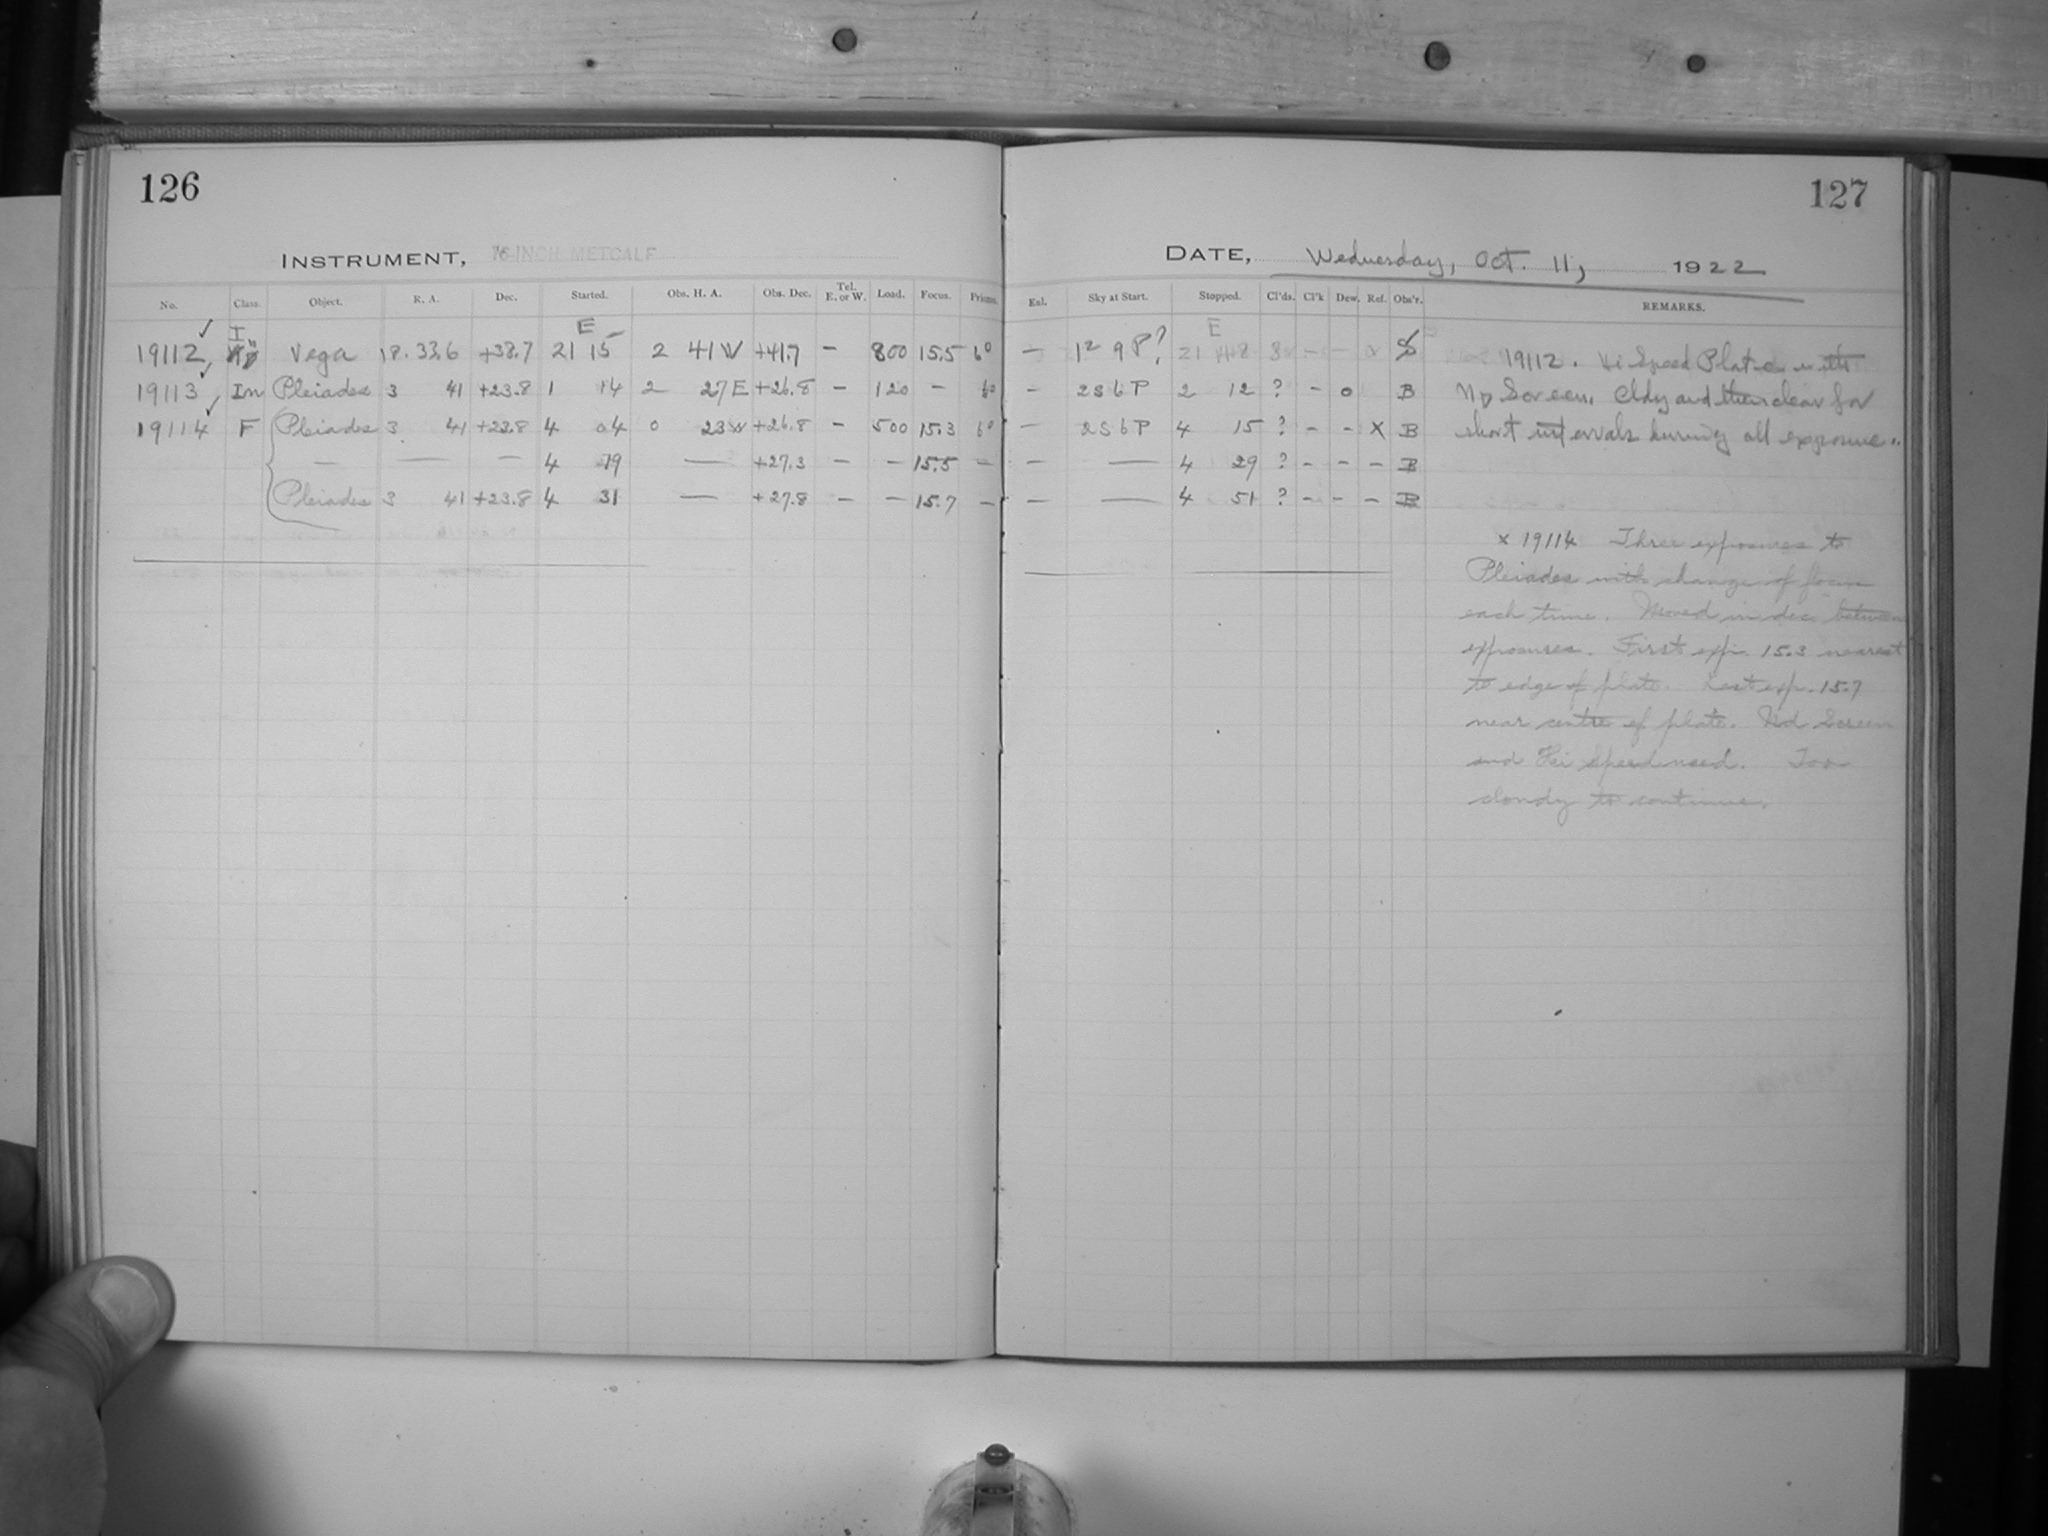 126
127
INSTRUMENT, 16-INCH METCALF
DATE, Wednesday, Oct. 11, 1922
No. Class. Object. R. A. Dec. Started. Obs. H. A. Obs. Dec. Tel. E. or W. Load. Focus. Prisms. Enl. Sky at Start. Stopped. Cl'ds. Cl'k Dew. Ref. Obs'r. REMARKS.
I E E
19112 Vega 18 33.6 +38.7 21 15 2 41 W +41.7 – 800 15.5 6° – 12 9 P? 21 – – S
19113 In Pleiades 3 41 +23.8 1 14 2 27 E +26.8 – 120 – 6° – 2S 6 P 2 12 ? – o B
19114 F Pleiades 3 41 +23.8 4 04 0 23 W +26.8 – 500 15.3 6° – 2S 6 P 4 15 ? – – X B
– – – 4 19 – +27.3 – – 15.5 – – – 4 29 ? – – – B
Pleiades 3 41 +23.8 4 31 – +27.8 – – 15.7 – – – 4 51 ? – – – B
19112. Hi Speed Plate with
Screen. Cldy and then clear for
short intervals during all exposure.
x 19114 Three exposures to
Pleiades with change of focus
each time. Moved in dec. between
exposures. First exp. 15.3 nearest
to edge of plate. Last exp. 15.7
near centre of plate. Nd Screen
and Hi Speed used. Too
cloudy to continue.